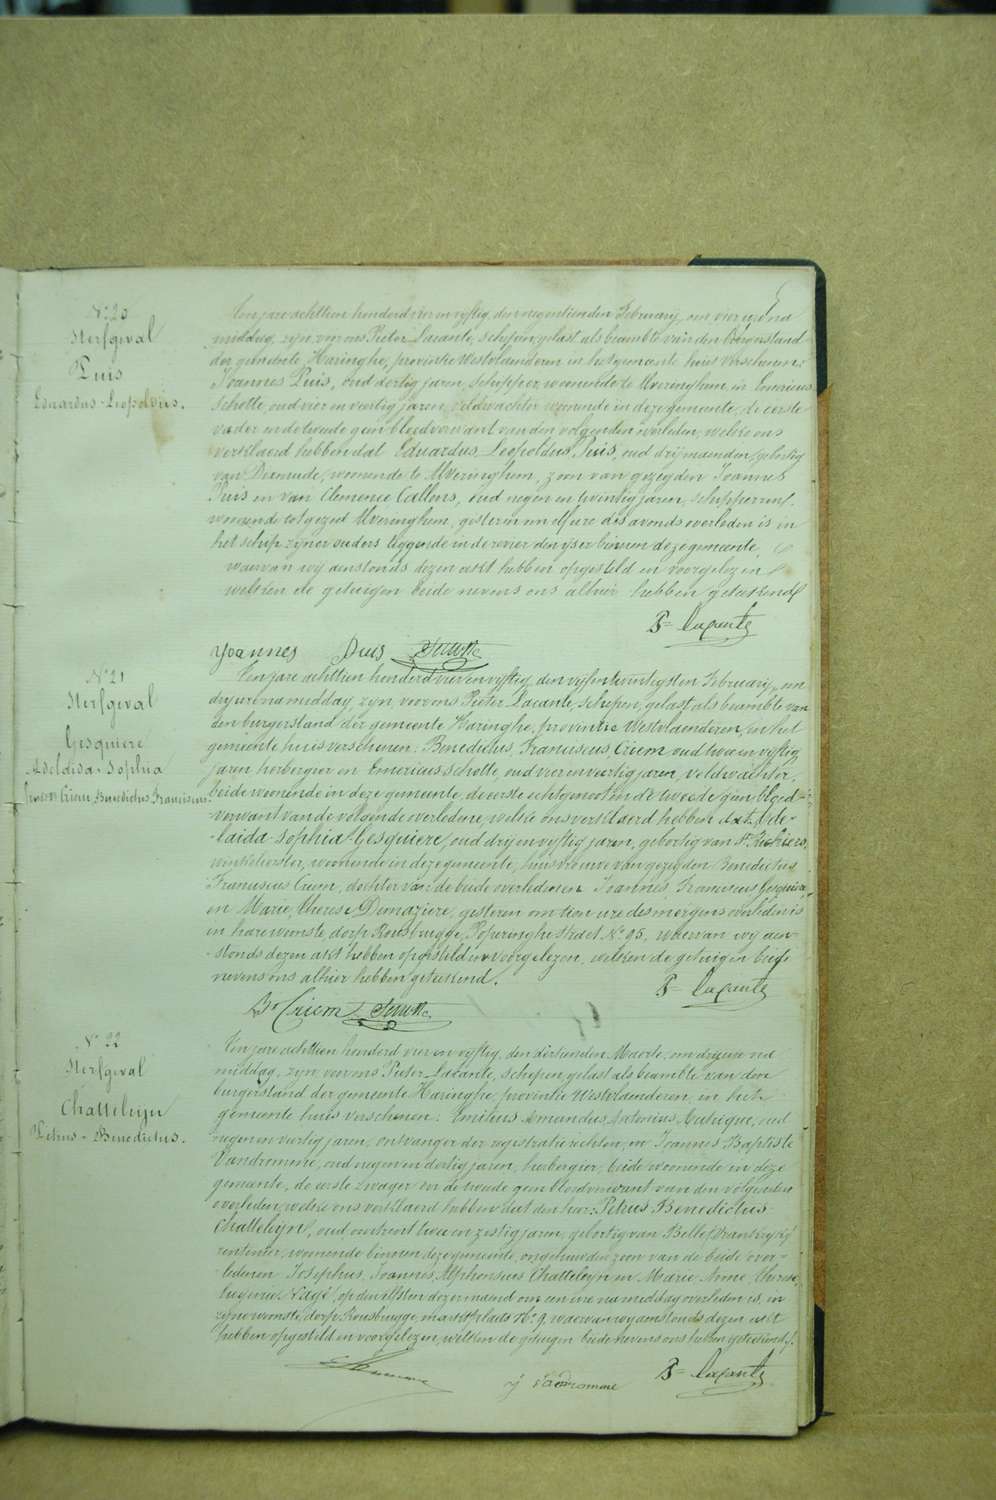 N° 20
Sterfgeval
Puis
Eduardus-Leopoldus.
Ten jare achttien honderd vier en vyftig, den negentienden February, om vier uren na
middag, zyn voor ons Pieter Lacante, schepen, gelast als beambte van den Borgerstand
der gemeente Haringhe, provintie Westvlaenderen in het gemeente huis verschenen:
Joannes Puis, oud dertig jaren, schipper, woonende te Alveringhem, en Emericus
Schotte, oud vier en veertig jaren, veldwachter woonende in deze gemeente, de eerste
vader en de tweede geen bloedverwant van den volgenden overleden, welke ons
verklaerd hebben dat Eduardus Leopoldus Puis, oud dry maenden, geboortig
van Dixmude, woonende te Alveringhem, zoon van gezegden Joannes
Puis en van Clemence Callens, oud negen en twintig jaren, schipperresse,
woonende tot gezed Alveringhem, gisteren om elf ure des avonds overleden is in
het schip zyner ouders liggende in de revier den yser binnen deze gemeente,
waervan wy aenstonds dezen akt hebben opgesteld en voorgelezen
welken de getuigen beide nevens ons alhier hebben geteekend.
P= Lacante
Yoannes Puis Schotte
N° 21
Sterfgeval
Gesquiere
Adelaida-Sophia
Criem Benedictus Franciscus.
Ten jare achttien honderd vier en vyftig, den vyfentwintigsten February, om
dry ure namiddag zyn, voor ons Pieter Lacante, schepen, gelast als beambte van
den burgerstand der gemeente Haringhe, provintie Westvlaenderen, in het
gemeente huis verschenen: Benedictus, Franciscus Criem oud twee en vyftig
jaren herbergier en Emericus Schotte, oud vier en veertig jaren, veldwachter,
beide woonende in deze gemeente, de eerste echtgenoot en de tweede geen bloed-
-verwant van de volgende overledene, welke ons verklaerd hebben dat Ade-
-laida-Sophia Gesquiere, oud dry en vyftig jaren, geboortig van St Rickiers,
winkelierster, woonende in deze gemeente, huisvrouwe van gezegden Benedictus
Franciscus Criem, dochter van de beide overledenen Joannes Franciscus Gesquiere
en Marie, Therese Demaziere, gisteren om tien ure des morgens overleden is
in hare woonste, dorp Rousbrugge, Poperinghe straet N° 95, waervan wy aen-
-stonds dezen akt hebben opgesteld en voorgelezen, welken de getuigen beide
nevens ons alhier hebben geteekend.
P= Lacante
Br Criem Schotte
N° 22
Sterfgeval
Chatteleyn
Petrus-Benedictus.
Ten jare achttien honderd vier en vyftig, den dertienden Maerte, om dry ure na
middag, zyn, voor ons Pieter Lacante, schepen gelast als beambte van den
burgerstand der gemeente Haringhe, provintie Westvlaenderen, in het
gemeente huis verschenen: Emilius Amandus Antonius Matrique, oud
negen en veertig jaren, ontvanger der registratie rechten, en Joannes Baptiste
Vandromme, oud negen en dertig jaren, herbergier, beide woonende in deze
gemeente, de eerste zwager en de tweede geen bloedverwant van den volgenden
overleden, welke ons verklaerd hebben dat den heer: Petrus Benedictus
Chatteleyn, oud omtrent twee en zestig jaren, geboortig van Belle, Frankryk,
rentenier, woonende binnen deze gemeente, ongehuwden zoon van de beide over-
-ledenen Josephus, Joannes, Alphonsius Chatteleyn en Marie, Anne, Therese
op den elfsten dezer maend om een ure na middag overleden is, in
zyne woonste, dorp Rousbrugge, marktplaets N° 9, waervan wy aenstonds dezen akt
hebben opgesteld en voorgelezen, welken de getuigen beide nevens ons hebben geteekend.
P= Lacante
J Vandromme